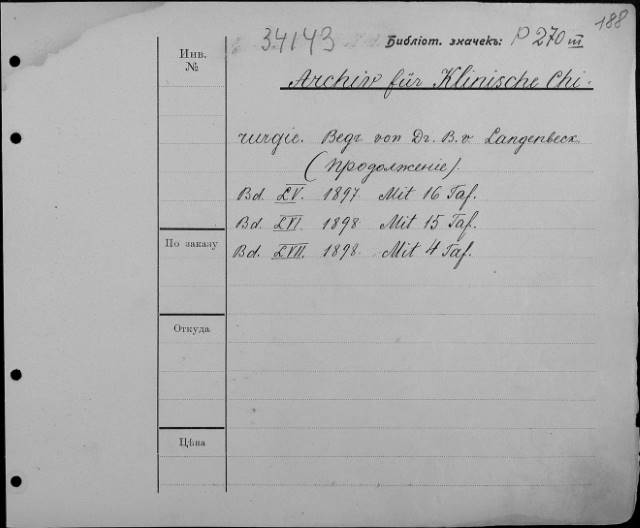 188
34143 Библіот. значекъ: P 270 III
Инв.
№
Archiv für Klinische Chi-
rurgie. Begr von Dr. B. v Langenbeck
(продолженіе).
Bd. LV. 1897 Mit 16 Taf.
Bd. LVI. 1898 Mit 15 Taf.
По заказу
Bd. LVII. 1898. Mit 4 Taf.
Откуда
Цѣна